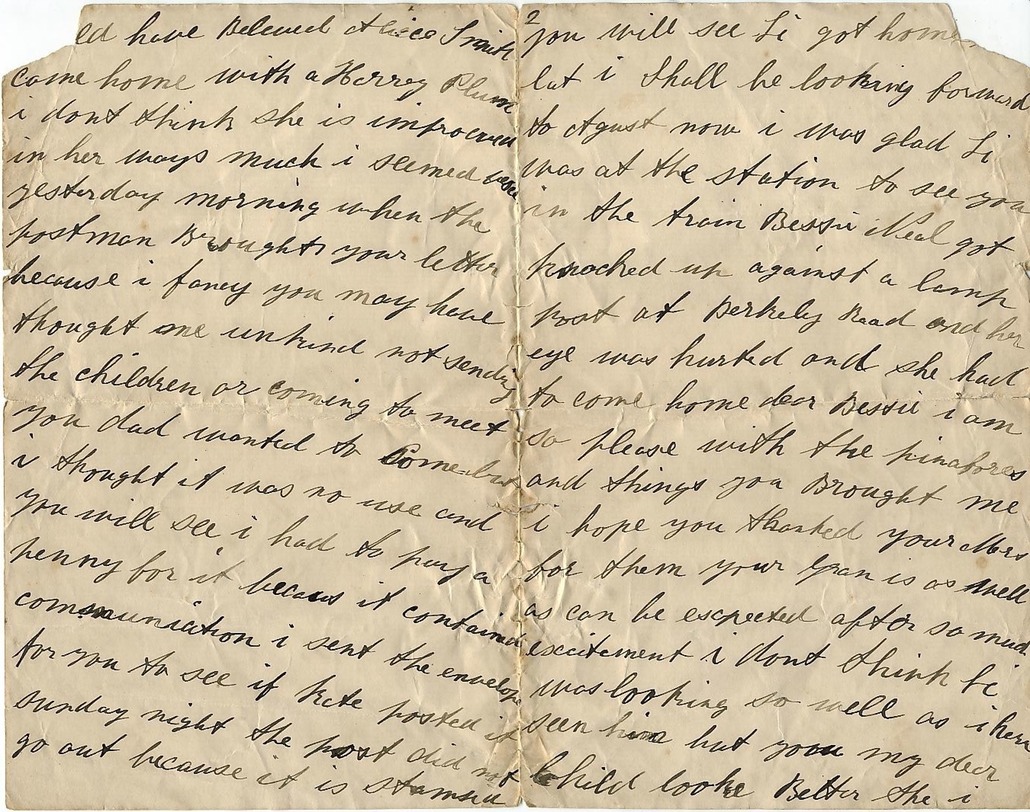 ed have Beleved Alice Smith
come home with a Herrey Plum
i dont think she is improoved
in her ways much i seemed
yesterday morning when the
postman Brought your letter
because i fancy you may have
thought me unkind not sendig
the children or coming to meet
you dad wanted to Come but
i thought it was no use and
you will see i had to pay a
penny for it becaus it contained
communiction i sent the envelope
for you to see if Kate posted it
sunday night the post did not
go out because it is stamsed
2
you will see Li got home
lat i Shall be looking forward
to Agust now i was glad Li
was at the station to see you
in the train Bessie Neal got
knocked up against a lamp
post at Berkely Road and her
eye was hurted and she had
to come home dear Bessie i am
so please with the pinafores
and things you Brought me
i hope you thanked your Mrs
for them your Gran is as well
as can be escpected after so much
escitement i dont think Li
was looking so well as i have
seen him but you my dear
Child looke Better the i